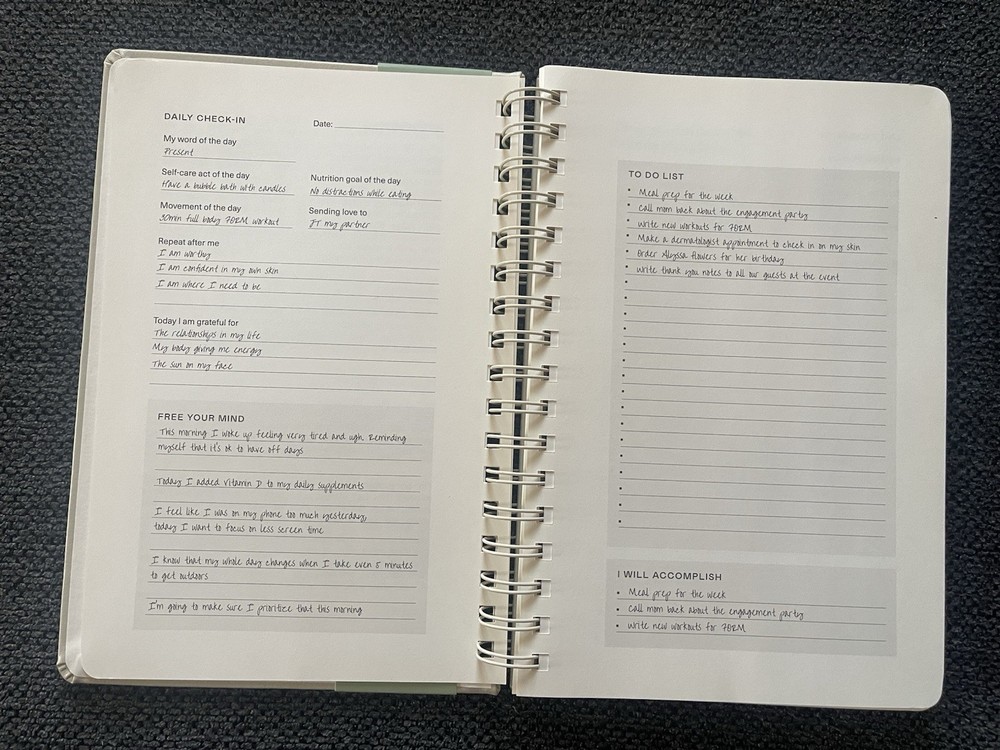 DAILY CHECK-IN
Date:
My word of the day
Present
Self-care act of the day
Have a bubble bath with candles
Nutrition goal of the day
No distractions while eating
Movement of the day
30min full body FORM workout
Sending love to
JT my partner
Repeat after me
I am worthy
I am confident in my own skin
I am where I need to be
Today I am grateful for
The relationships in my life
My body giving me energy
The sun on my face
FREE YOUR MIND
This morning I woke up feeling very tired and ugh. Reminding
myself that it's ok to have off days
Today I added Vitamin D to my daily supplements
I feel like I was on my phone too much yesterday,
today I want to focus on less screen time
I know that my whole day changes when I take even 5 minutes
to get outdoors
I'm going to make sure I prioritize that this morning
TO DO LIST
• Meal prep for the week
• Call mom back about the engagement party
• Write new workouts for FORM
• Make a dermatologist appointment to check in on my skin
• Order Alyssa flowers for her birthday
• Write thank you notes to all our guests at the event
I WILL ACCOMPLISH
• Meal prep for the week
• Call mom back about the engagement party
• Write new workouts for FORM